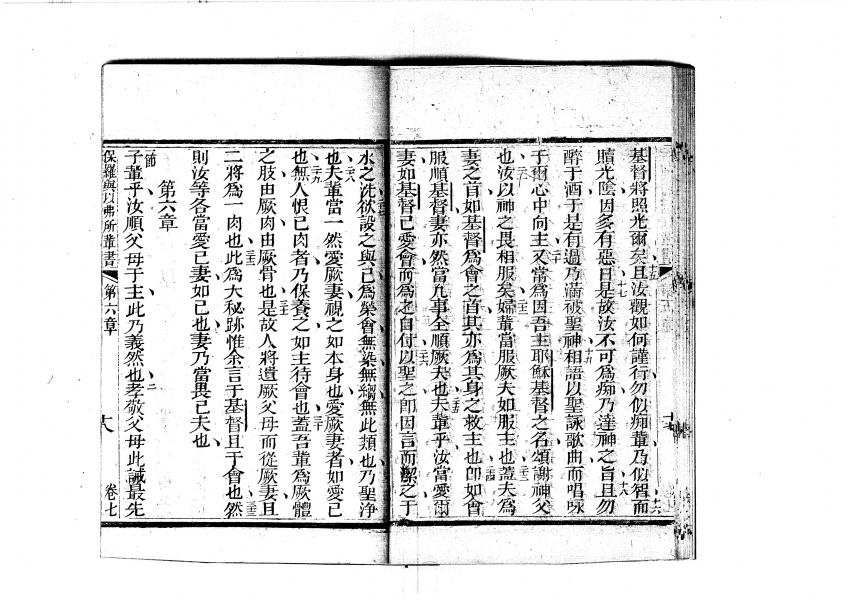 基督將照光爾矣且汝觀如何謹行勿似痴輩乃似智而
贖光陰因多有惡日是故汝不可為痴乃達神之旨且勿
醉于酒于是有過乃滿被聖神相語以聖詠歌曲而唱咏
于爾心中向主又當為因吾主耶穌基督之名頌謝神父
也汝以神之畏相服矣婦輩當服厥夫如服主也蓋夫為
妻之首如基督為會之首其亦為其身之救主也卽如會
服順基督妻亦然當凡事全順厥夫也夫輩乎汝當愛爾
妻如基督己愛會而為之自付以聖之卽因言而潔之于
水之洗欲設之與己為榮會無染無縐無此類也乃聖淨
也夫輩當一然愛厥妻視之如本身也愛厥妻者如愛己
也無人恨己肉者乃保養之如主待會也蓋吾輩為厥體
之肢由厥肉由厥骨也是故人將遺厥父母而從厥妻且
二將為一肉也此為大秘跡惟余言于基督且于會也然
則汝等各當愛己妻如己也妻乃當畏己夫也
第六章
節
子輩乎汝順父母于主此乃義然也孝敬父母此誡最先
保羅與以弗所輩書 第六章 卷七